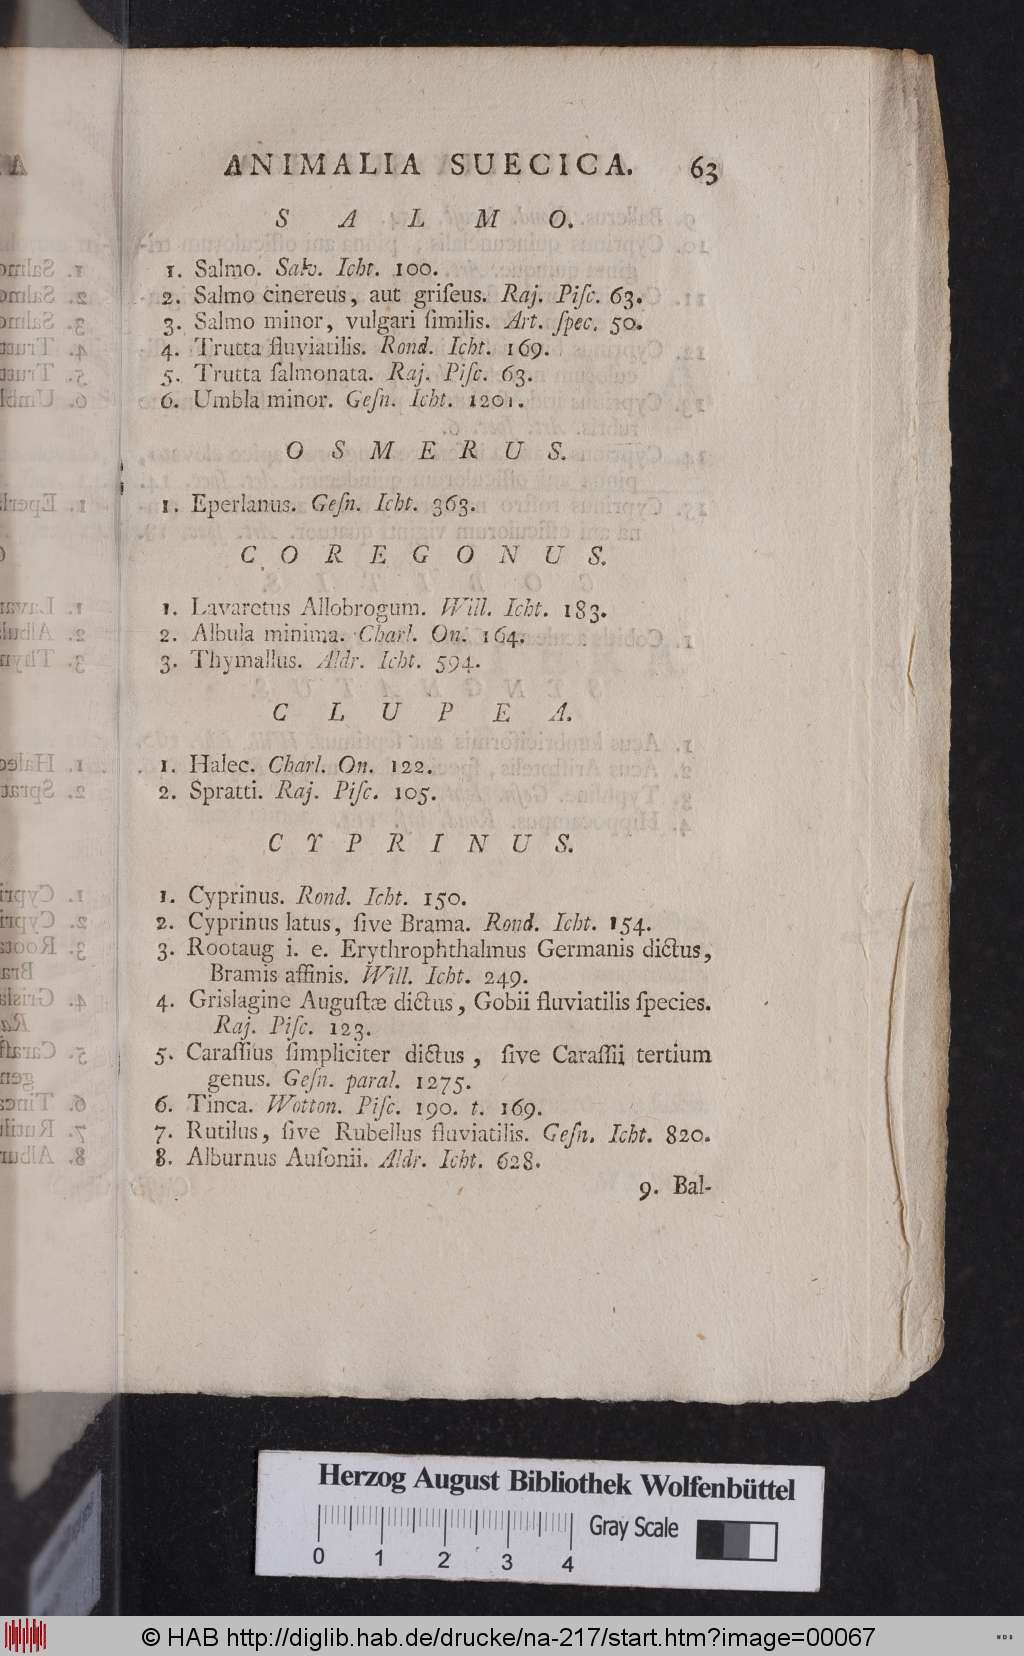 ANIMALIA SUECICA. 63
S A L M O.
1. Salmo. Salv. Icht. 100.
2. Salmo cinereus, aut griſeus. Raj. Piſc. 63.
3. Salmo minor, vulgari ſimilis. Art. ſpec. 50.
4. Trutta fluviatilis. Rond. Icht. 169.
5. Trutta ſalmonata. Raj. Piſc. 63.
6. Umbla minor. Geſn. Icht. 1201.
O S M E R U S.
1. Eperlanus. Geſn. Icht. 363.
C O R E G O N U S.
1. Lavaretus Allobrogum. Will. Icht. 183.
2. Albula minima. Charl. On. 164.
3. Thymallus. Aldr. Icht. 594.
C L U P E A.
1. Halec. Charl. On. 122.
2. Spratti. Raj. Piſc. 105.
C Y P R I N U S.
1. Cyprinus. Rond. Icht. 150.
2. Cyprinus latus, ſive Brama. Rond. Icht. 154.
3. Rootaug i. e. Erythrophthalmus Germanis dictus,
Bramis affinis. Will. Icht. 249.
4. Grislagine Auguſtæ dictus, Gobii fluviatilis ſpecies.
Raj. Piſc. 123.
5. Caraſſius ſimpliciter dictus, ſive Caraſſii tertium
genus. Geſn. paral. 1275.
6. Tinca. Wotton. Piſc. 190. t. 169.
7. Rutilus, ſive Rubellus fluviatilis. Geſn. Icht. 820.
8. Alburnus Auſonii. Aldr. Icht. 628.
9. Bal-
Herzog August Bibliothek Wolfenbüttel
Gray Scale
0 1 2 3 4
© HAB http://diglib.hab.de/drucke/na-217/start.htm?image=00067